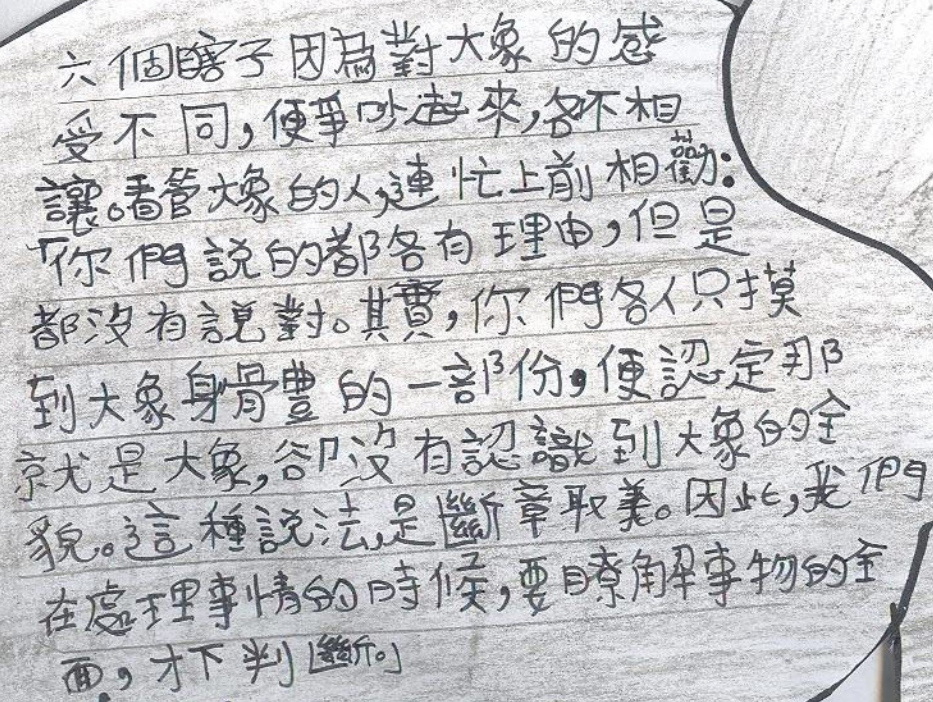 六個瞎子因為對大象的感
受不同,便爭吵起來,各不相
讓。看管大象的人,連忙上前相勸:
「你們說的都各有理由,但是
都沒有說對。其實,你們各人只摸
到大象身體的一部份,便認定那
就是大象,卻沒有認識到大象的全
貌。這種說法,是斷章取義。因此,我們
在處理事情的時候,要瞭解事物的全
面,才下判斷。」